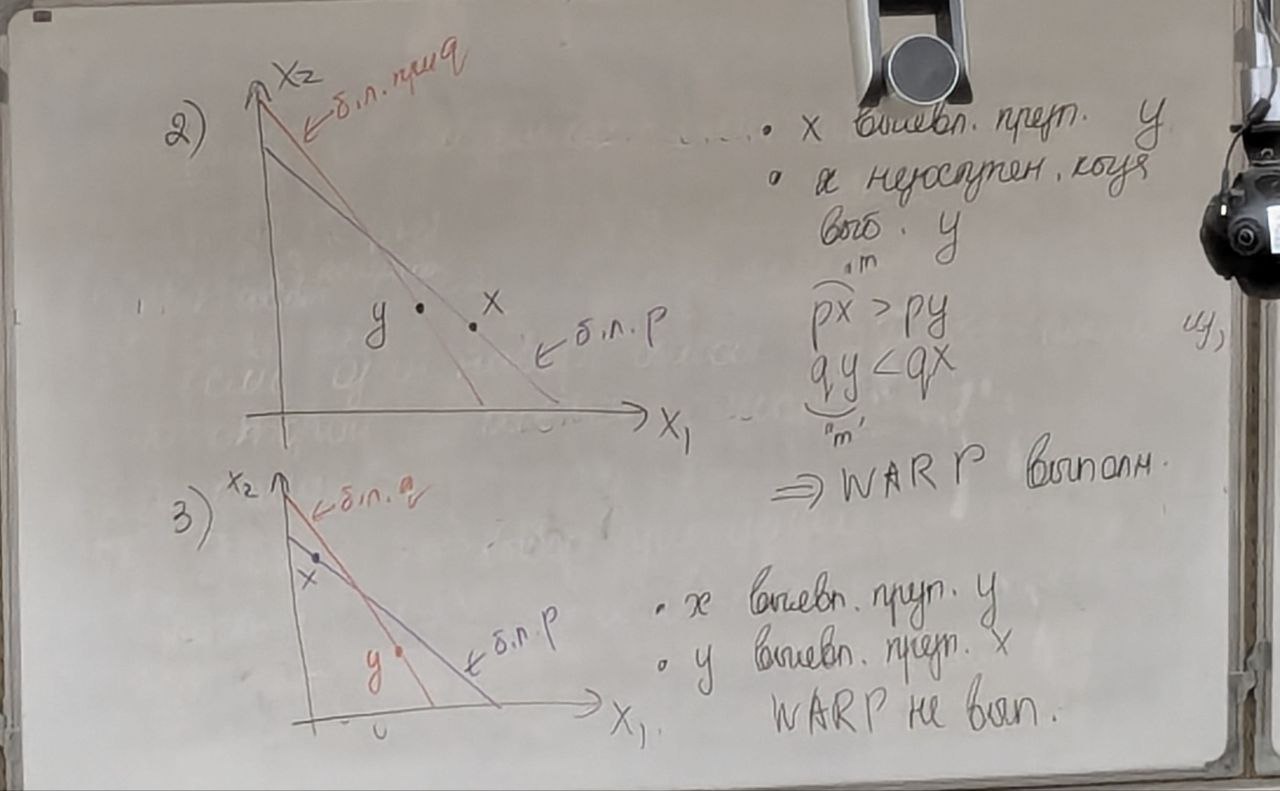 2)
x₂
б.л. при q
y
x
б.л. p
x₁
• x выявл. предп. y
• x недоступен, когда
выб. y
"m
px > py
qy < qx
"m'
⇒ WARP выполн.
3)
x₂
б.л. q
x
y
б.л. p
x₁
• x выявл. предп. y
• y выявл. предп. x
WARP не вып.